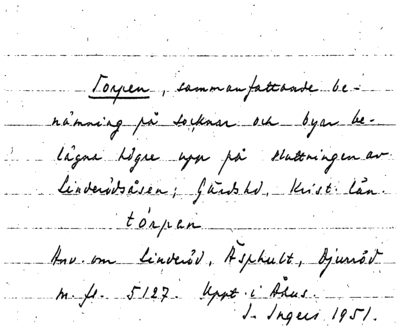 Torpen, sammanfattande be-
nämning på socknar och byar be-
lägna högre upp på sluttningen av
Linderödsåsen; Gärds hd, Krist. län.
tórpen
Anv. om Linderöd, Äsphult, Djurröd
m. fl. 5127. Uppt. i Åhus.
I. Ingers 1951.